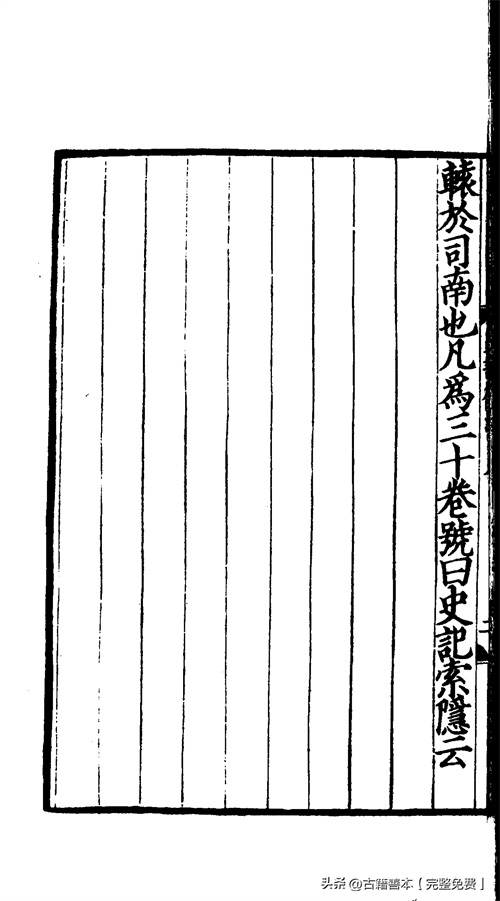 轅於司南也凡為三十卷號曰史記索隱云
头条 @古籍善本【完整免费】